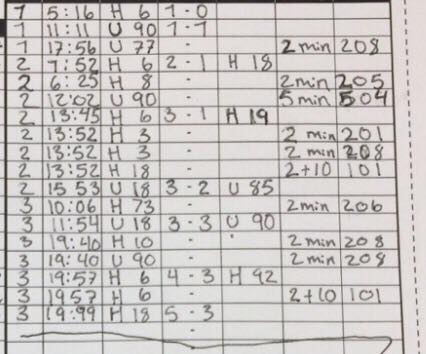 1 5:16 H 6 1-0
1 11:11 U 90 1-1
1 17:56 U 77 - 2min 208
2 1:52 H 6 2-1 H 18
2 6:25 H 8 - 2min 205
2 12:02 U 90 - 5min 504
2 13:45 H 6 3-1 H 19
2 13:52 H 3 - 2 min 201
2 13:52 H 3 - 2 min 208
2 13:52 H 18 - 2+10 101
2 15 53 U 18 3-2 U 85
3 10:06 H 73 - 2min 206
3 11:54 U 18 3-3 U 90
3 19:40 H 10 - 2 min 208
3 19:40 U 90 - 2 min 208
3 19:57 H 6 4-3 H 92
3 1957 H 6 - 2+10 101
3 19:99 H 18 5-3